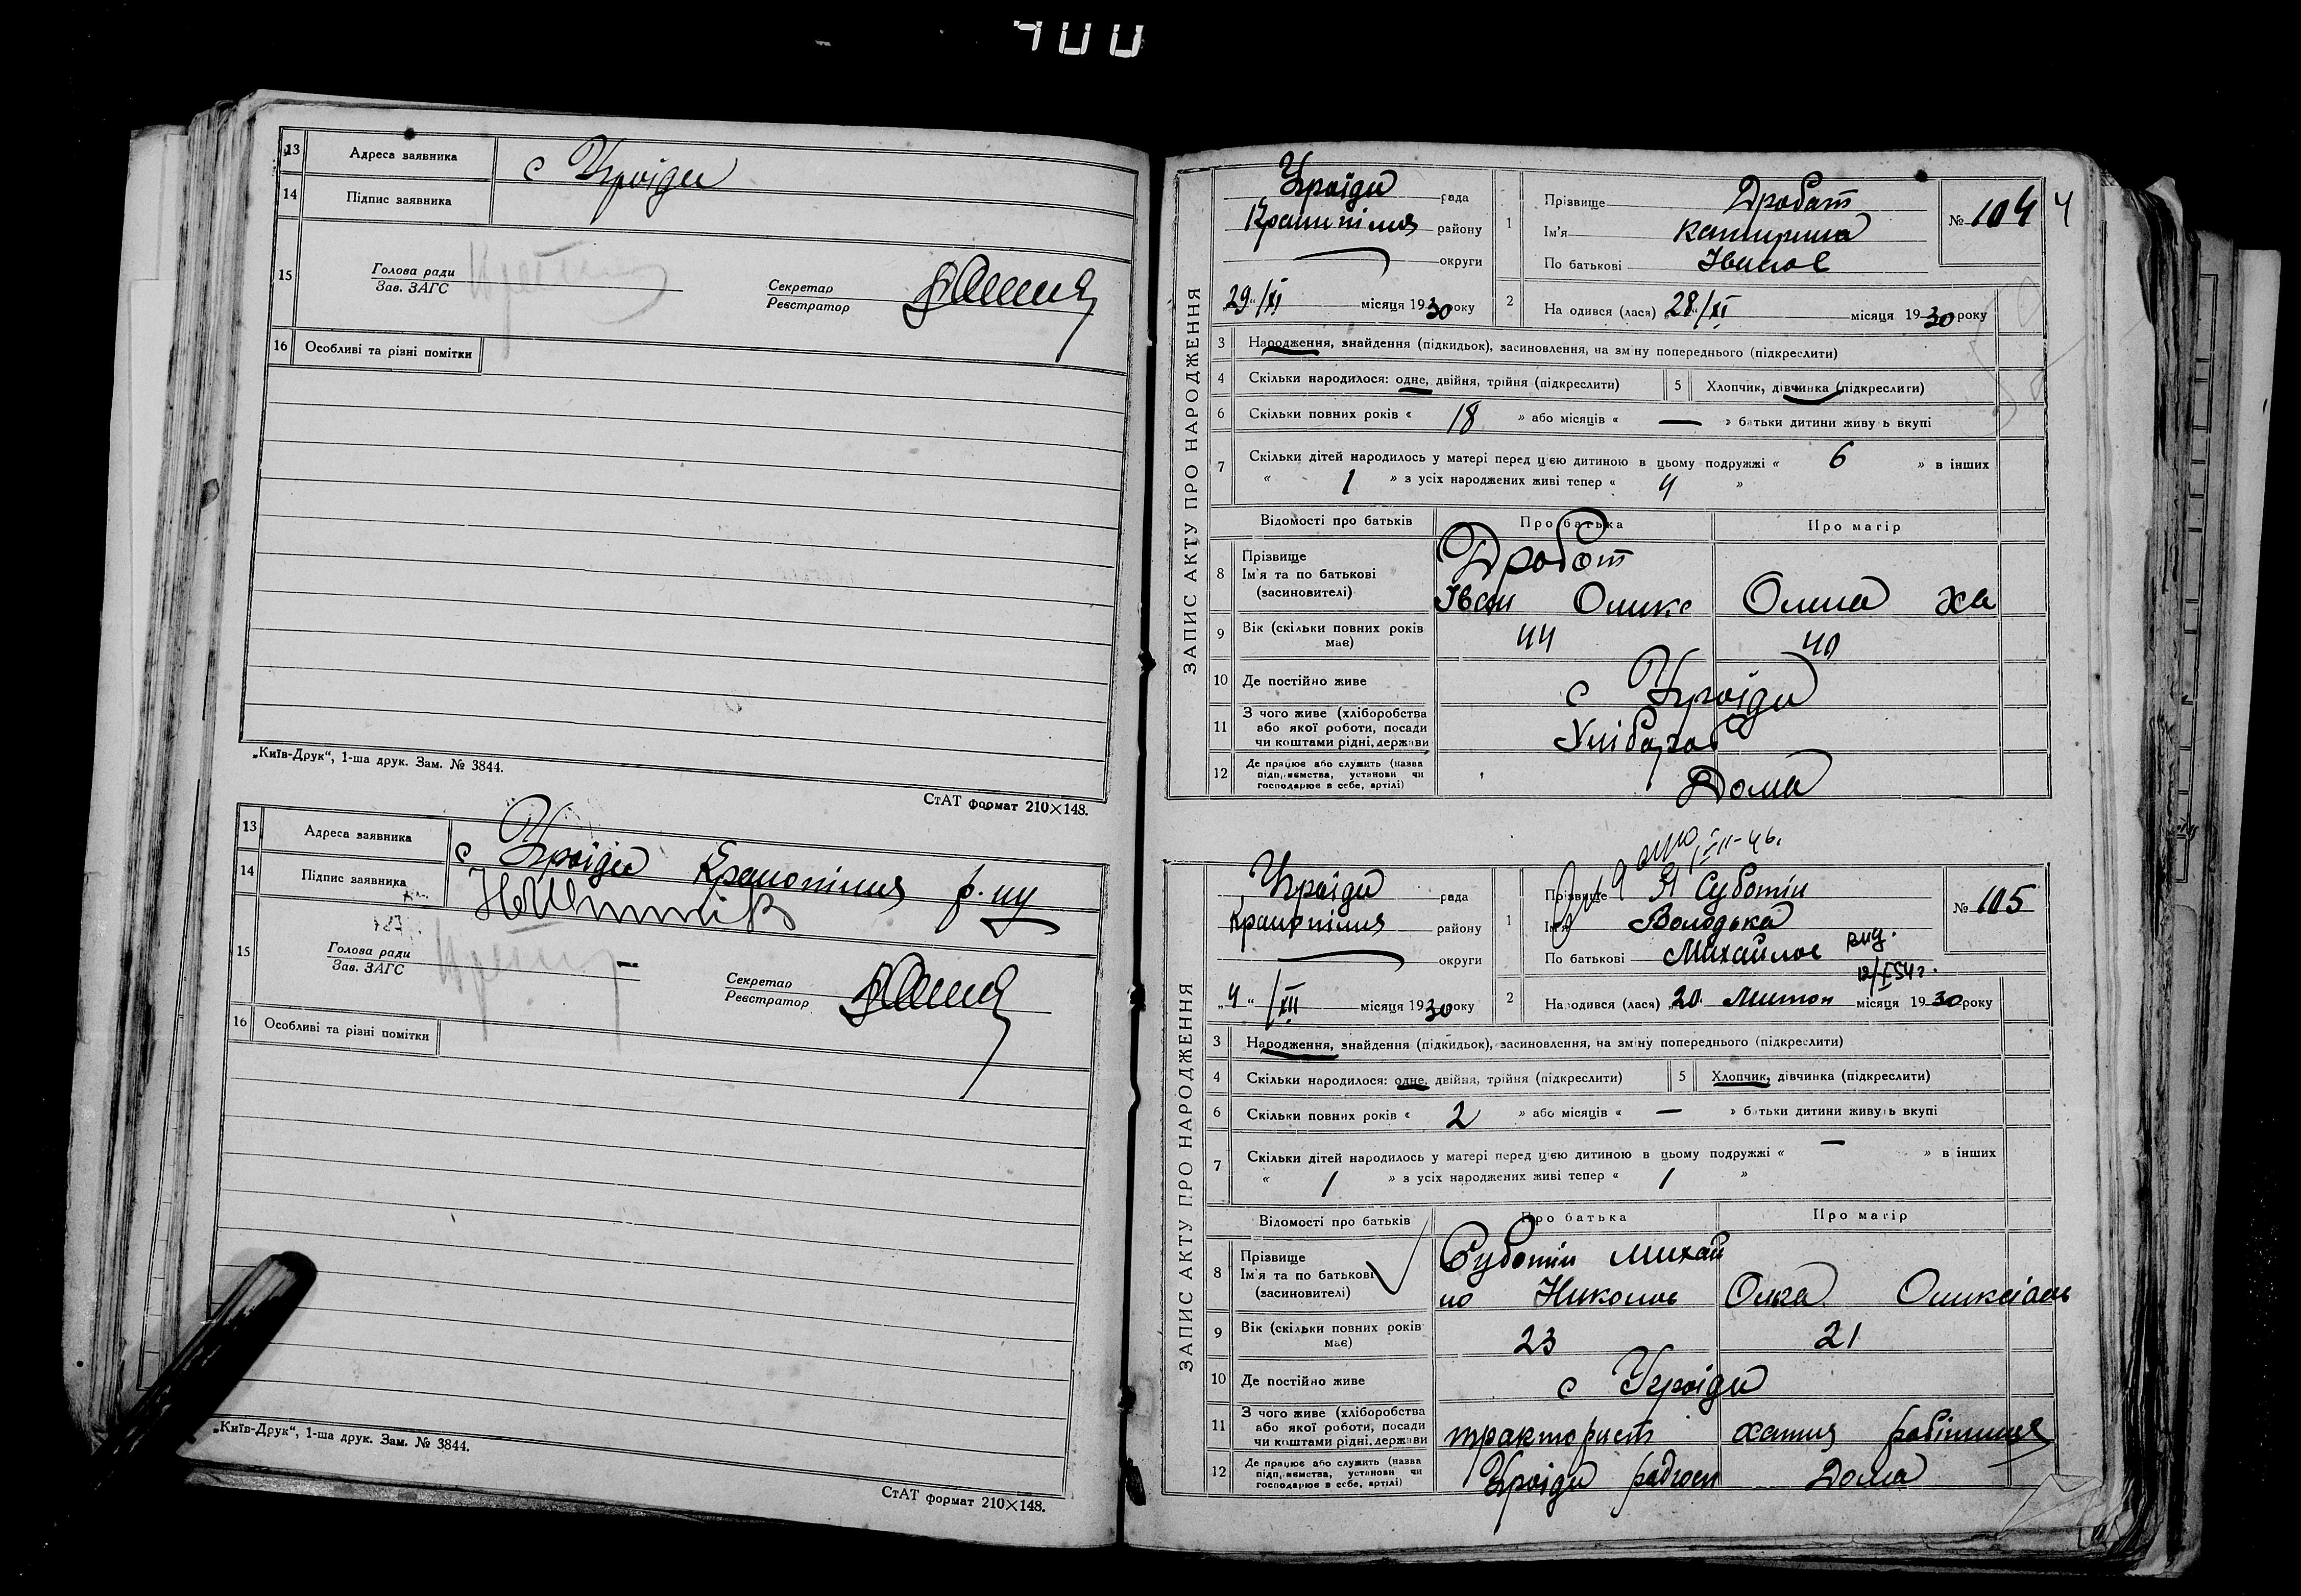 400
13 Адреса заявника с Угроїди
14 Підпис заявника
15 Голова ради
Зав. ЗАГС
Секретар
Реєстратор
16 Особливі та різні помітки
„Київ-Друк“, 1-ша друк. Зам. № 3844.
СтАТ формат 210×148.
13 Адреса заявника с Угроїди Краснопілля р-ну
14 Підпис заявника
15 Голова ради
Зав. ЗАГС
Секретар
Реєстратор
16 Особливі та різні помітки
„Київ-Друк“, 1-ша друк. Зам. № 3844.
СтАТ формат 210×148.
ЗАПИС АКТУ ПРО НАРОДЖЕННЯ
Угроїди рада
Краснопілля району
округи
„29“/XI місяця 1930 року
1 Прізвище Дробот
Ім'я Катирина
По батькові Іванов
№ 104
4
2 На одився (лася) „28“/XI місяця 1930 року
3 Народження, знайдення (підкидьок), засиновлення, на зміну попереднього (підкреслити)
4 Скільки народилося: одне, двійня, трійня (підкреслити) 5 Хлопчик, дівчинка (підкреслити)
6 Скільки повних років « 18 » або місяців « — » батьки дитини живуть вкупі
7 Скільки дітей народилось у матері перед цією дитиною в цьому подружжі « 6 » в інших
« 1 » з усіх народжених живі тепер « 4 »
Відомості про батьків Про батька Про матір
8 Прізвище
Ім'я та по батькові
(засиновителі)
Дробот
Іван Оликс Олина
9 Вік (скільки повних років має) 44 40
10 Де постійно живе с Угроїди
11 З чого живе (хліборобства
або якої роботи, посади
чи коштами рідні, держави
12 Де працює або служить (назва
підприємства, установи чи
господарює в себе, артілі)
Дома
ЗАПИС АКТУ ПРО НАРОДЖЕННЯ
Угроїди рада
Краснопілля району
округи
„4“/XII місяця 1930 року
1 Прізвище Суботін
Ім'я Володька
По батькові Михайлов
№ 105
2 Народився (лася) „20“ Листоп місяця 1930 року
3 Народження, знайдення (підкидьок), засиновлення, на зміну попереднього (підкреслити)
4 Скільки народилося: одне, двійня, трійня (підкреслити) 5 Хлопчик, дівчинка (підкреслити)
6 Скільки повних років « 2 » або місяців « — » батьки дитини живуть вкупі
7 Скільки дітей народилось у матері перед цією дитиною в цьому подружжі « — » в інших
« 1 » з усіх народжених живі тепер « 1 »
Відомості про батьків Про батька Про матір
8 Прізвище
Ім'я та по батькові
(засиновителі)
Суботін Михай
ло Николов Олга
9 Вік (скільки повних років має) 23 21
10 Де постійно живе с Угроїди
11 З чого живе (хліборобства
або якої роботи, посади
чи коштами рідні, держави
тракторист хатня робітниця
12 Де працює або служить (назва
підприємства, установи чи
господарює в себе, артілі)
Угроїди радгосп Дома